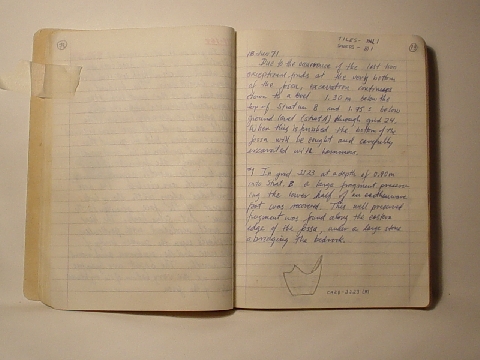 Due to the occurrence of the last two
exceptional finds at the very bottom
of the fossa, excavation continues
down to a level 1.30 m below the
top of Stratum B and 1.95 ± below
ground level (strat A) through grid 24.
When this is finished the bottom of the
fossa will be sought and carefully
excavated with hammers.
In grid 2223 at a depth of 0.90m
into Strat. B, a large fragment preserv-
ing the lower half of an earthenware
pot was recovered. This well preserved
fragment was found along the eastern
edge of the fossa, under a large stone
abridging the bedrock.